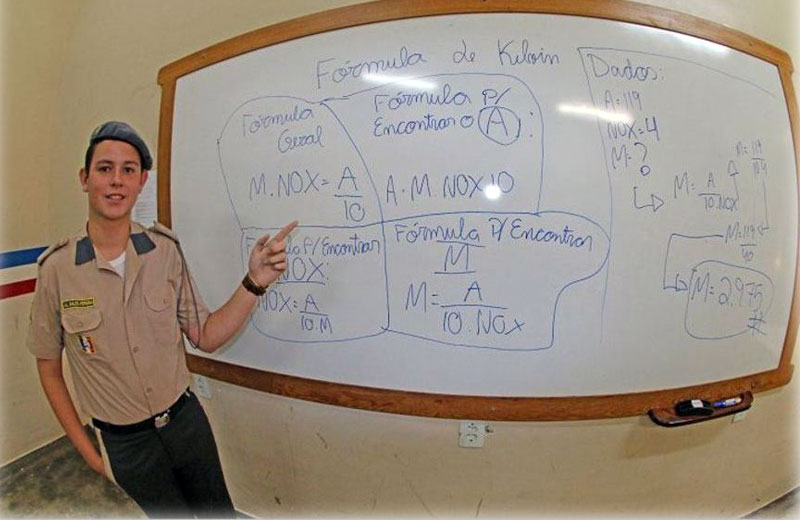 Fórmula de Kelvin
Fórmula
Geral
M.NOX = A
10
Fórmula P/
Encontrar o A :
A.M.NOX 10
P/ Encontrar
NOX:
NOX = A
10.M
Fórmula P/ Encontrar
M
M = A
10.NOX
Dados:
A = 119
NOX = 4
M = ?
M = A
10.NOX
M = 119
10.4
M = 119
40
M = 2,975
#